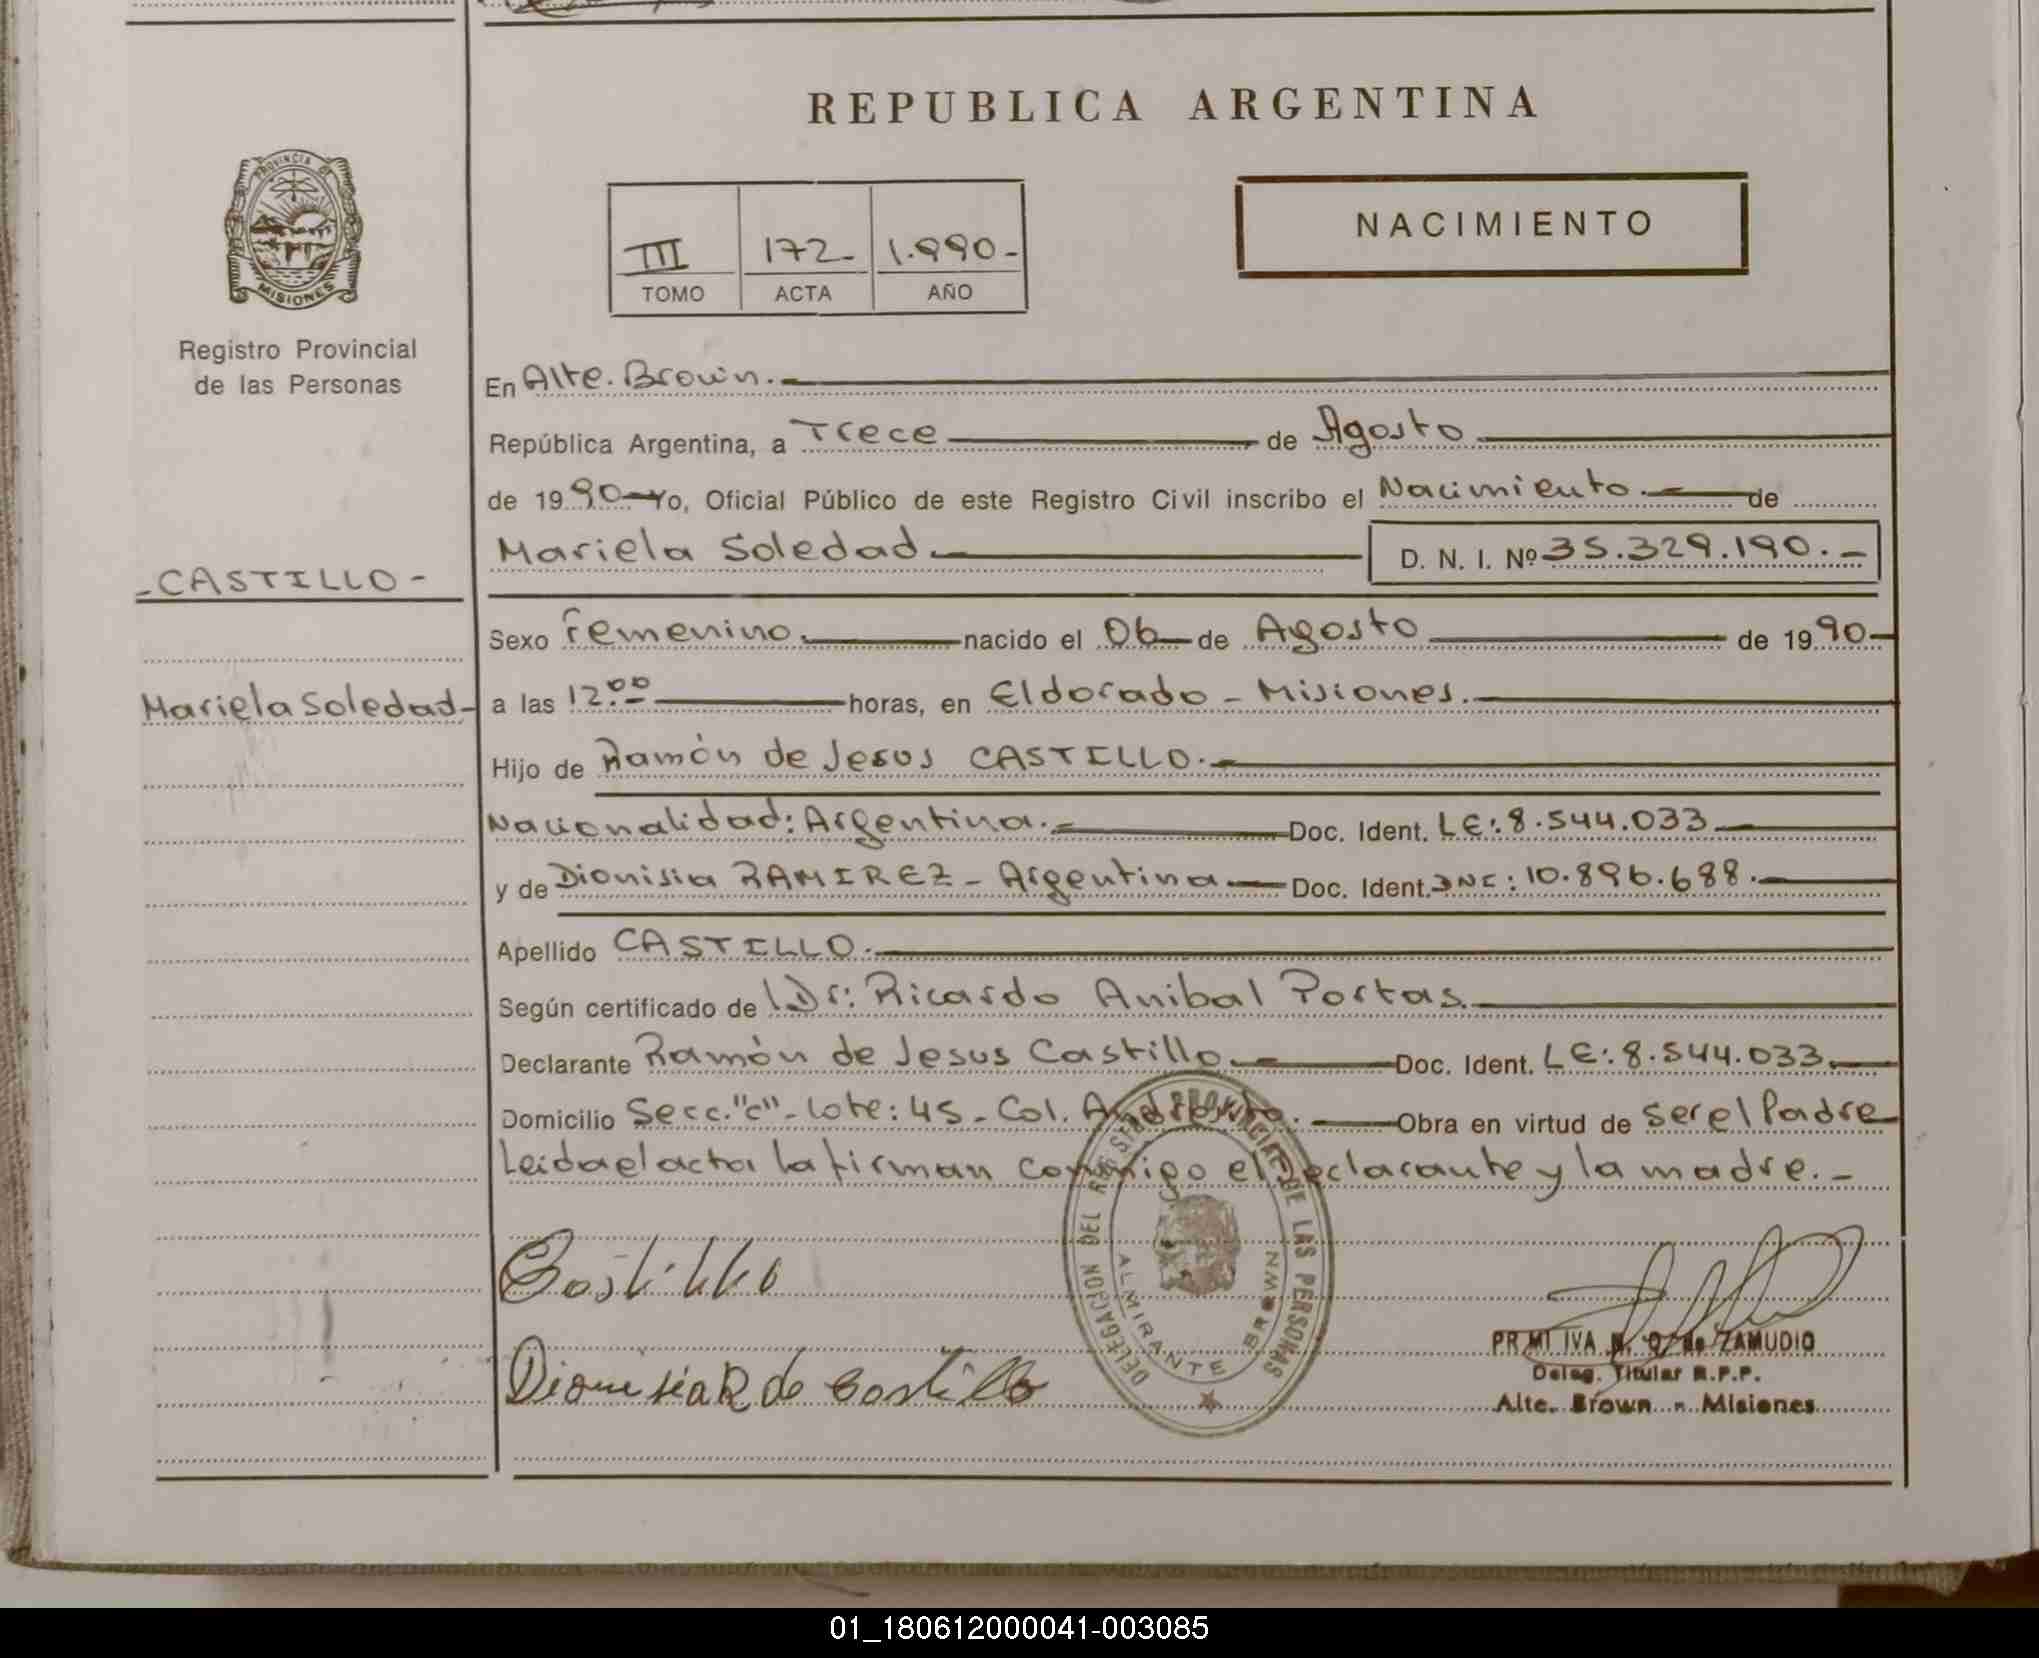 REPUBLICA ARGENTINA
PROVINCIA DE
MISIONES
Registro Provincial
de las Personas
III 172- 1.990-
TOMO ACTA AÑO
NACIMIENTO
En Alte. Brown.-
República Argentina, a Trece de Agosto
de 1990 Yo, Oficial Público de este Registro Civil inscribo el Nacimiento.- de
Mariela Soledad.- D. N. I. Nº 35.329.190.-
-CASTILLO-
Sexo Femenino. nacido el 06 de Agosto de 1990-
Mariela Soledad-
a las 12:00 horas, en Eldorado - Misiones.-
Hijo de Ramón de Jesus CASTILLO.-
Nacionalidad: Argentina.- Doc. Ident. LE: 8.544.033
y de Dionisia RAMIREZ - Argentina Doc. Ident. DNI: 10.896.688.-
Apellido CASTILLO.-
Según certificado de Dr: Ricardo Anibal Portas.
Declarante Ramón de Jesus Castillo.- Doc. Ident. LE: 8.544.033
Domicilio Secc. "c" - Lote: 45 - Col. Andresito. Obra en virtud de ser el Padre
Leida el acta la firman conmigo el Declarante y la madre.-
DELEGACION DEL REGISTRO PROVINCIAL DE LAS PERSONAS
ALMIRANTE BROWN
Castillo
Dionisia R de Castillo
PRIMITIVA R. Q. de ZAMUDIO
Deleg. Titular R.P.P.
Alte. Brown - Misiones
01_180612000041-003085